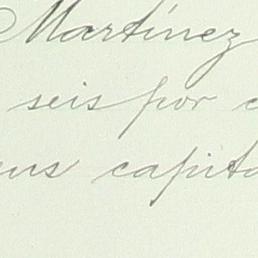 Martínez
seis por c
ens capita